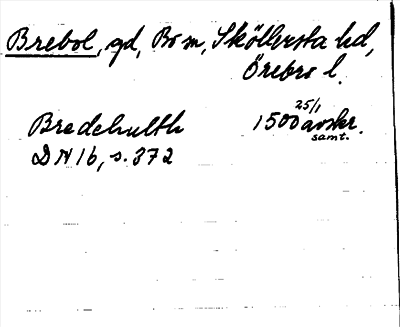 Brebol, gd, Bo sn, Sköllersta hd,
Örebro l.
Bredehulth 1500 25/1 avskr.
samt.
DN 16, s. 372